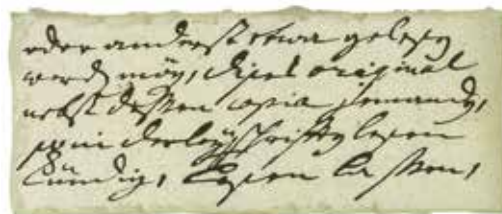 oder anderst etwa gelesen
werden möge, dieses original
nebst dessen copia jemand,
so in derley schrifften lesen
kündig, lesen lassen,